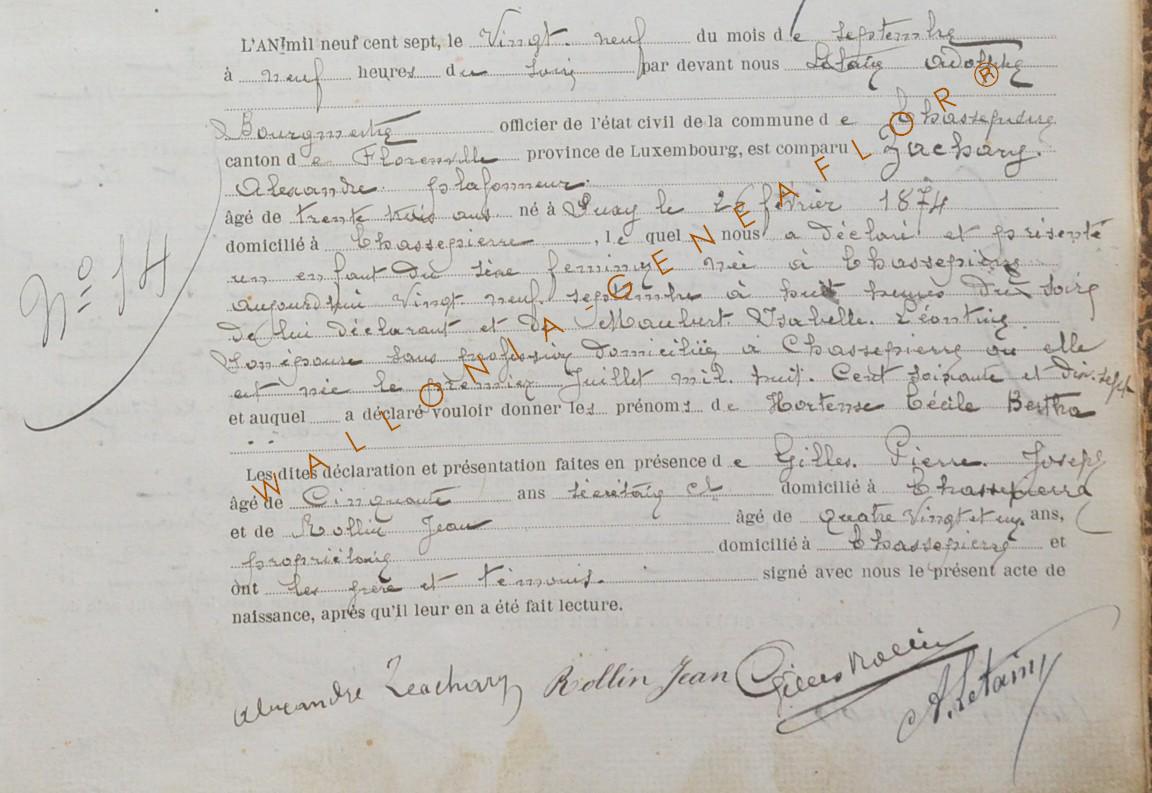 N° 14
L'AN mil neuf cent sept, le Vingt. neuf du mois de septembre
à neuf heures du soir par devant nous Létaiy Adolphe
Bourgmestre officier de l'état civil de la commune de Chassepierre
canton de Florenville province de Luxembourg, est comparu Zachary.
Alexandre. plafonneur.
âgé de trente trois ans né à Izel le 26 février 1874
domicilié à Chassepierre, le quel nous a déclaré et présenté
un enfant du sexe féminin née à Chassepierre
aujourd'hui Vingt neuf septembre à huit heures du soir
de lui déclarant et de Maubert. Isabelle. Léontine
son épouse sans profession domiciliée à Chassepierre où elle
est née le premier Juillet mil. huit. Cent soixante et dix. sept
et auquel a déclaré vouloir donner les prénoms de Hortense Cécile Bertha
Les dites déclaration et présentation faites en présence de Gilles. Pierre. Joseph
âgé de Cinquante ans secrétaire cl domicilié à Chassepierre
et de Rollin Jean âgé de quatre Vingt et un ans,
propriétaire domicilié à Chassepierre et
ont les père et témoins. signé avec nous le présent acte de
naissance, après qu'il leur en a été fait lecture.
Alexandre Zeachary Rollin Jean Gilles Rollin A. Letainy
WALLONIA-GENEAFLOR ®